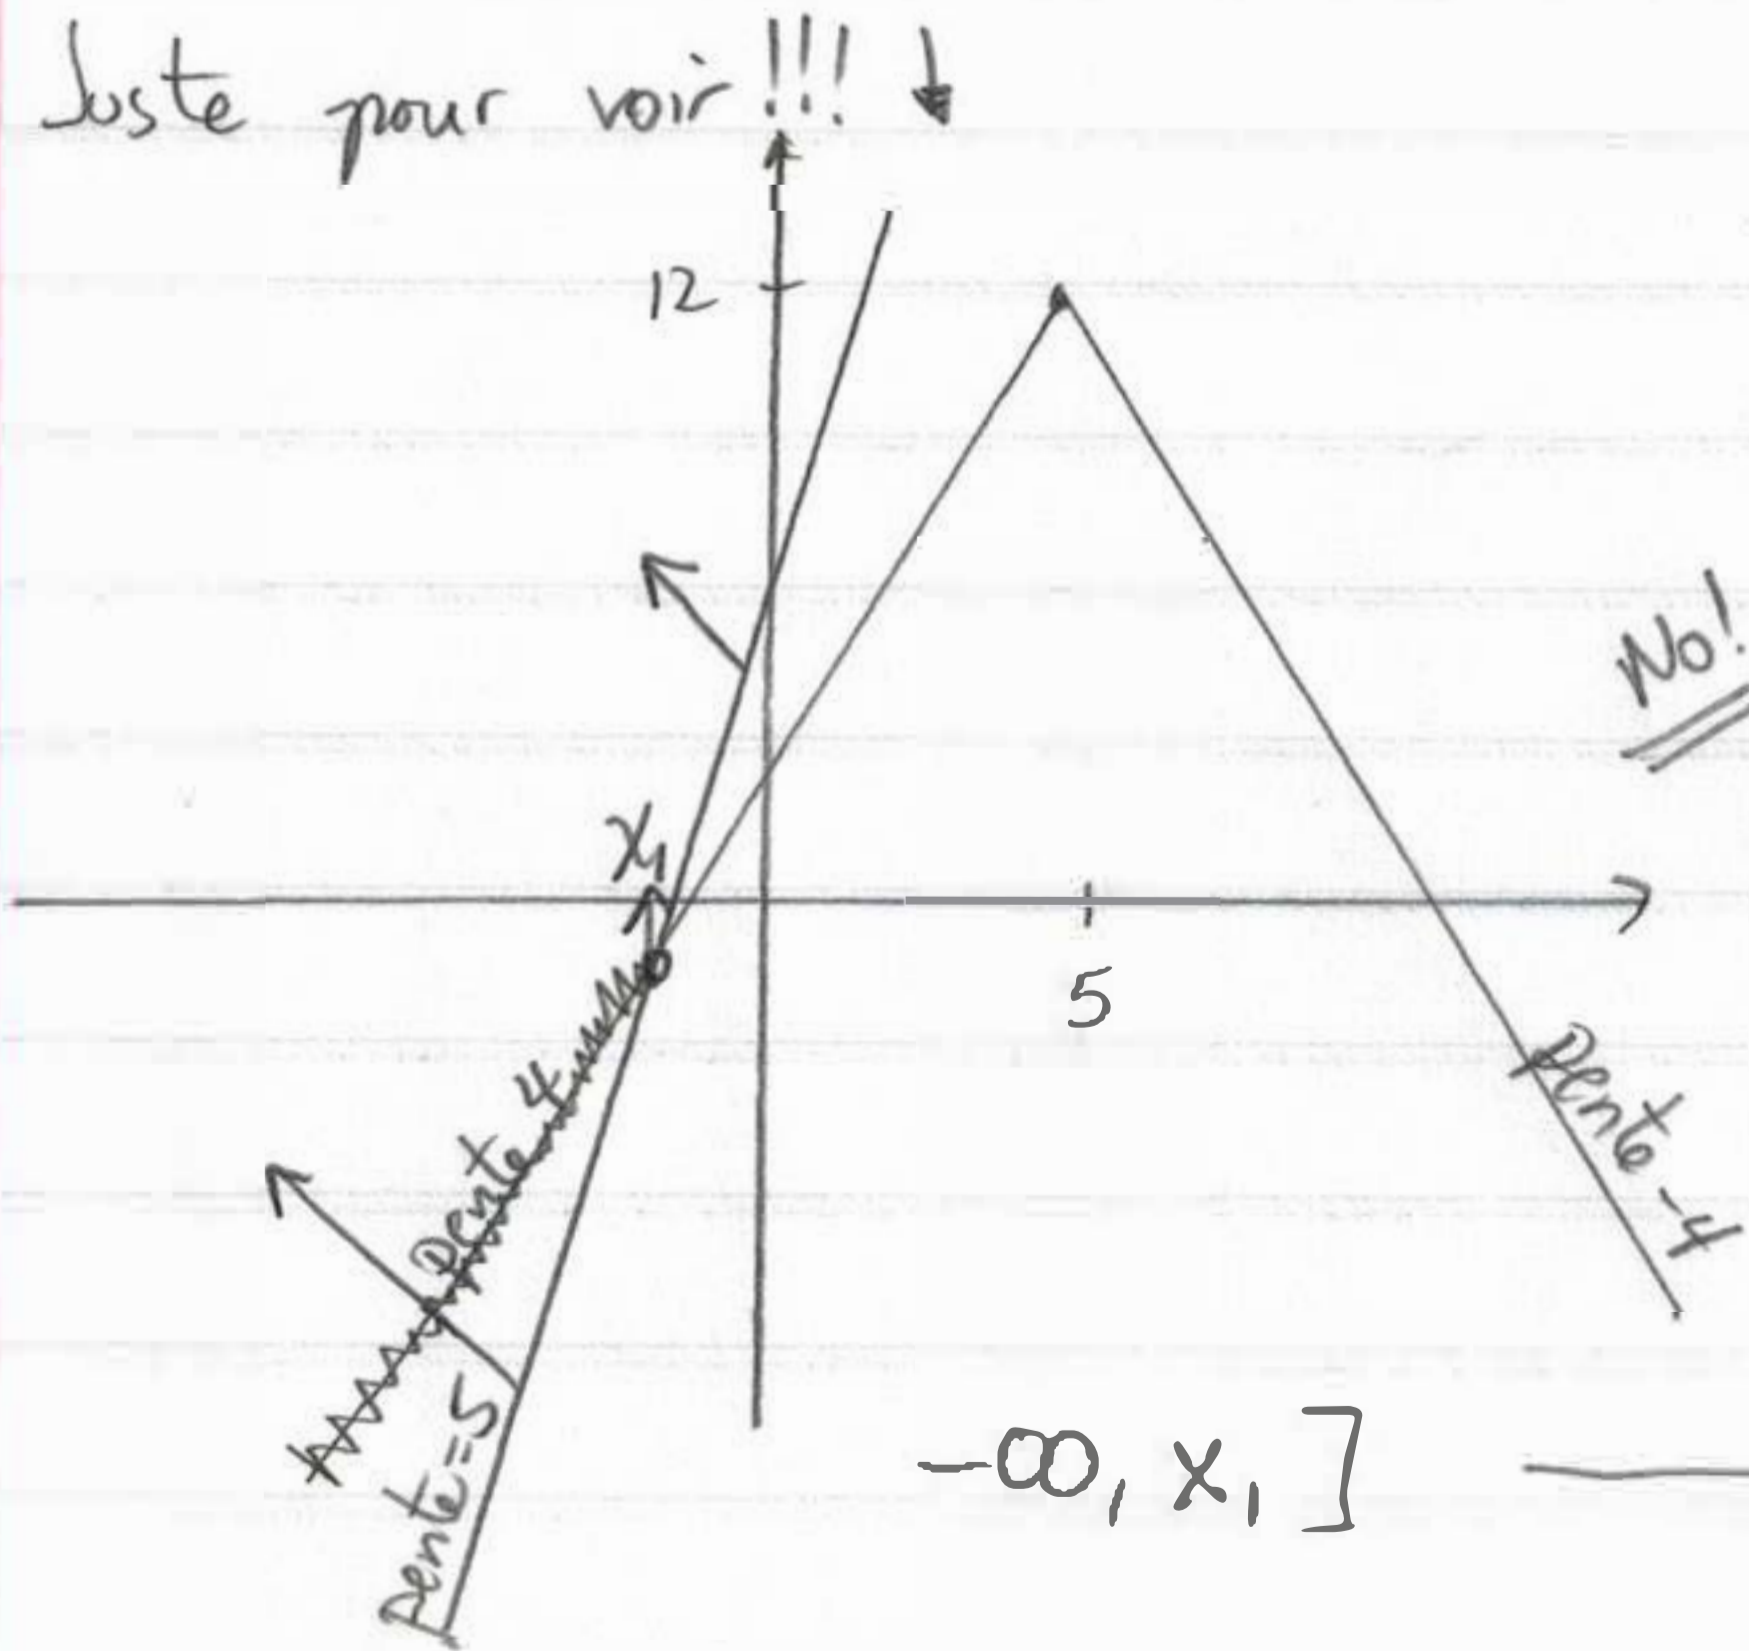 Juste pour voir !!!
12
No!
x₁
5
Pente 4
Pente -4
Pente = 5
-∞, x₁ ]